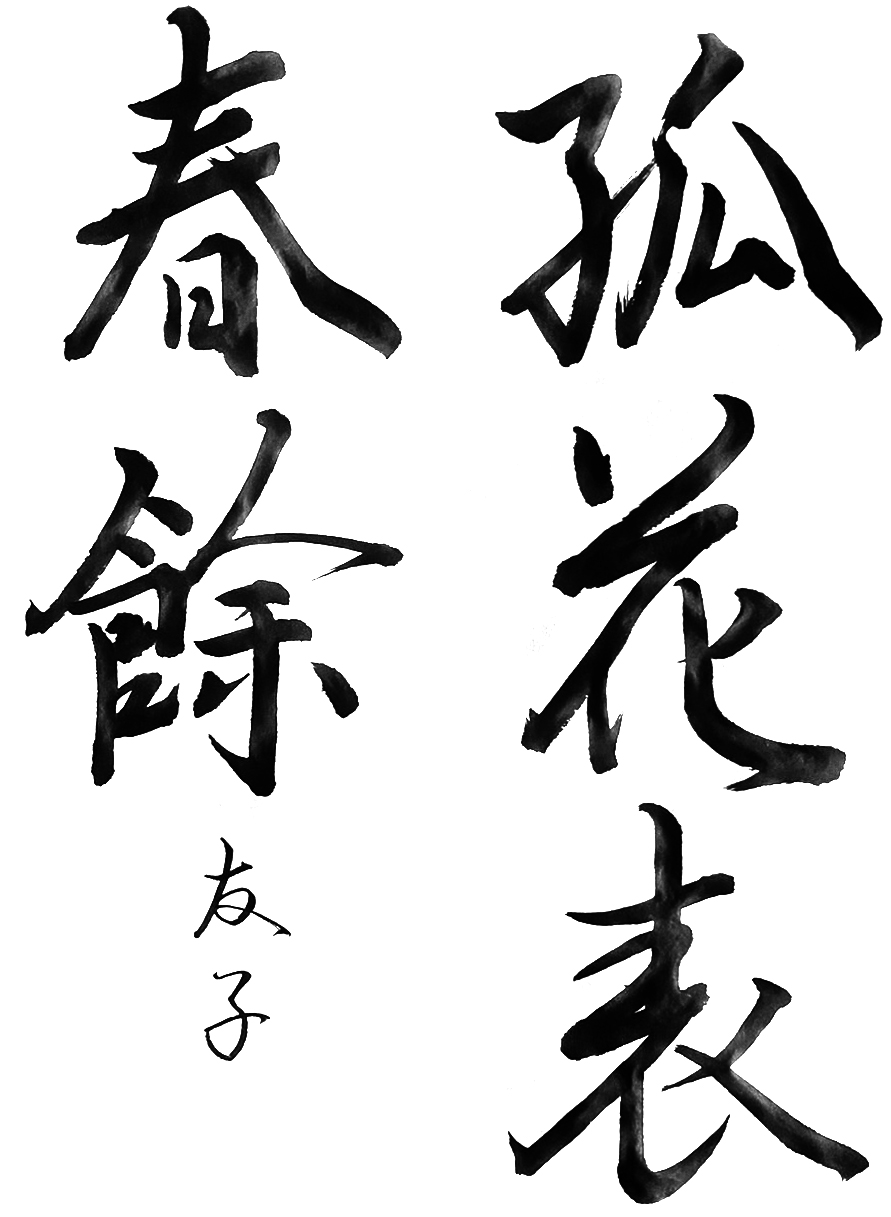 孤花表
春餘
友子